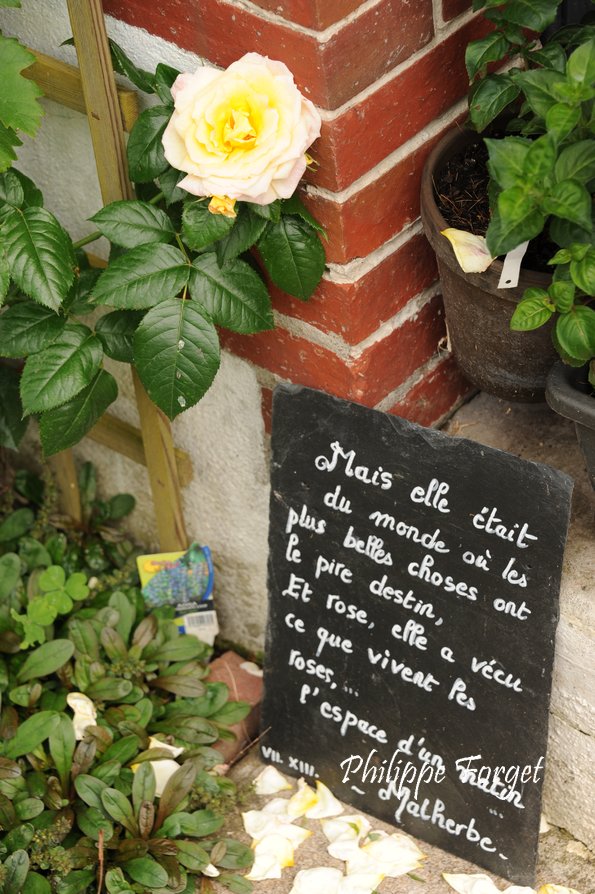 Mais elle était
du monde où les
plus belles choses ont
le pire destin,
Et rose, elle a vécu
ce que vivent les
roses,...
l'espace d'un matin
...
VII.XIII. ~ Malherbe~
Philippe Forget